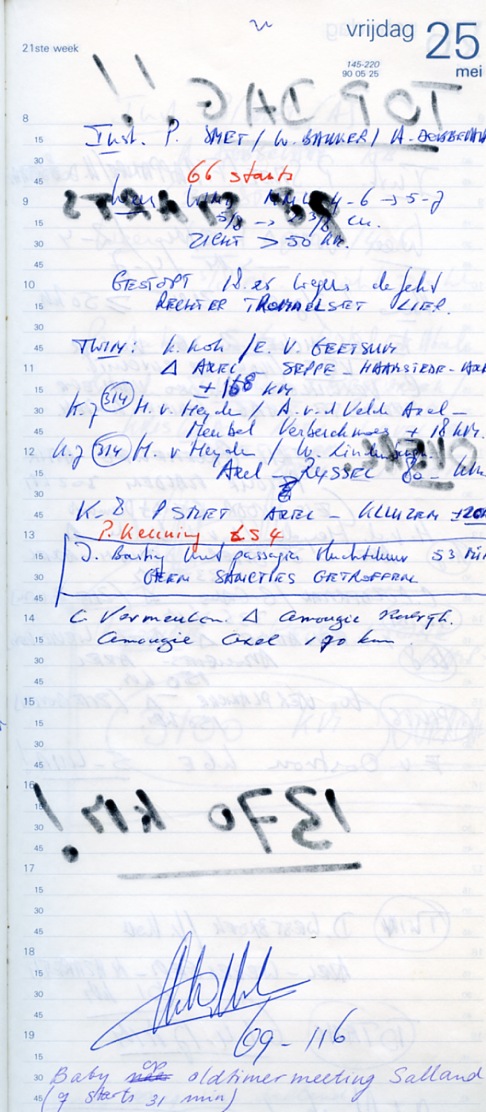 vrijdag 25
21ste week
145-220
90 05 25
mei
Inst. P. SMET / W. BAKKER / A.
66 starts
NNW 4-6 → 5-7
5/8 → 3/8 cu.
ZICHT > 50 km.
GESTOPT 18.25 wegens defekt
RECHTER TROMMELSET LIER.
TWIN: K. Koh / E. V. GEETSUM
Δ AXEL SEPPE - HAAMSTEDE - AXEL
± 168 KM
K.7 (314) H. v. Heyde / A. v.d Velde Axel -
Meubel Verberckmoes + 18 km.
K.7 (314) H. v Heyde / W.
Axel - RIJSSEL 80 - km
K. 8 P SMET AXEL -
P. Kenning LS4
J. Bartig met passagier Vluchtduur 53 min
GEEN SANCTIES GETROFFEN
C. Vermeulen. Δ Amougie
Amougie Axel 170 km.
69-116
Baby op oldtimermeeting Salland
(9 starts 31 min)
8
15
30
45
9
15
30
45
10
15
30
45
11
15
30
45
12
15
30
45
13
15
30
45
14
15
30
45
15
15
30
45
16
15
30
45
17
15
30
45
18
15
30
45
19
15
30
45
TOP DAG!!
66 STARTS
OVERL.
1370 km!